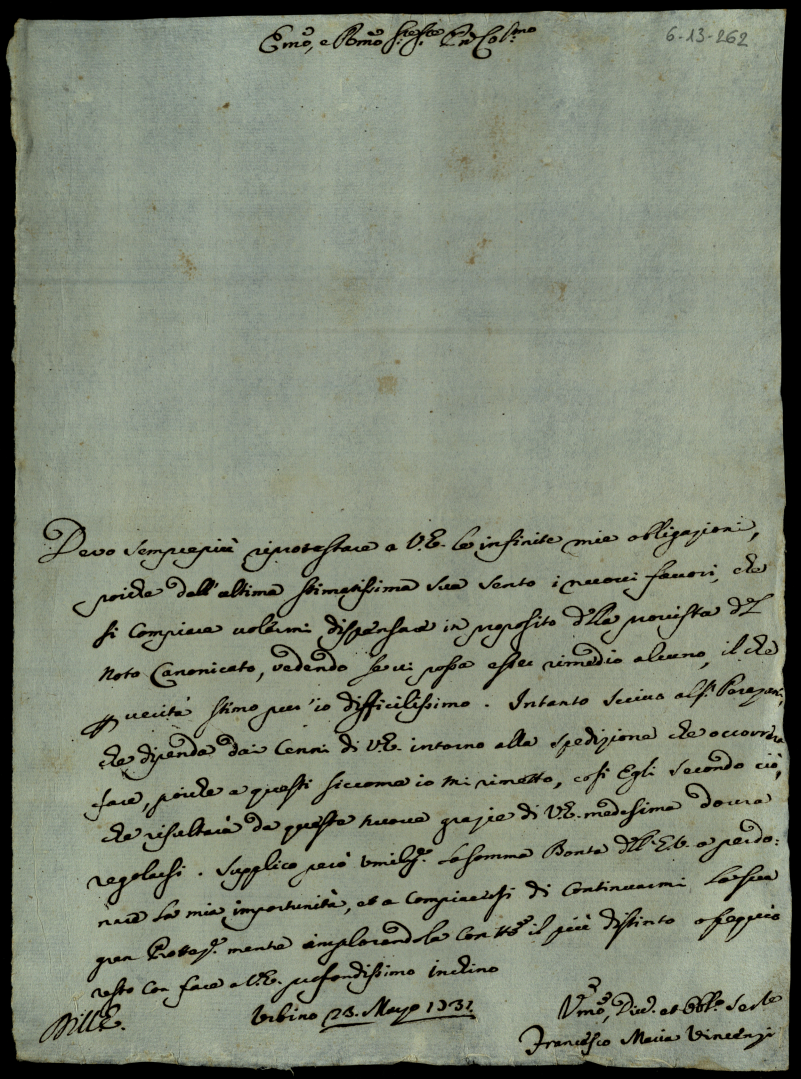 Em̃o, e Rm̃o Sig.re Sig.re Pñ Col.mo
6-13-262
Devo sempre più riprotestare a V.E. le infinite mie obligazioni,
poiche dall'ultima stimatissima sua sento i nuovi favori, che
si compiace volermi dispensare in proposito della provista del
noto Canonicato, vedendo se vi possa esser rimedio alcuno, il che
per verità stimo pur'io difficilissimo. Intanto scrivo al Sr.
che dipenda dai Cenni di V.E. intorno alla spedizione che occorrerà
fare, poiche a questi siccome io mi rimetto, così Egli secondo ciò,
che risulterà da queste nuove grazie di V.E. medesima dovrà
regolarsi. Supplico però umilm.e la somma Bontà dell'E.V. a perdo:
nare la mia importunità, et a compiacersi di continuarmi la sua
gran Protez.e mentre implorandola con tt̃o il più distinto ossequio
resto con fare a V.E. profondissimo inchino
Di V.E.
Urbino 23. Marzo 1731.
Um̃o, Div.o et Obb.o Ser.re
Francesco Maria Vincenzi